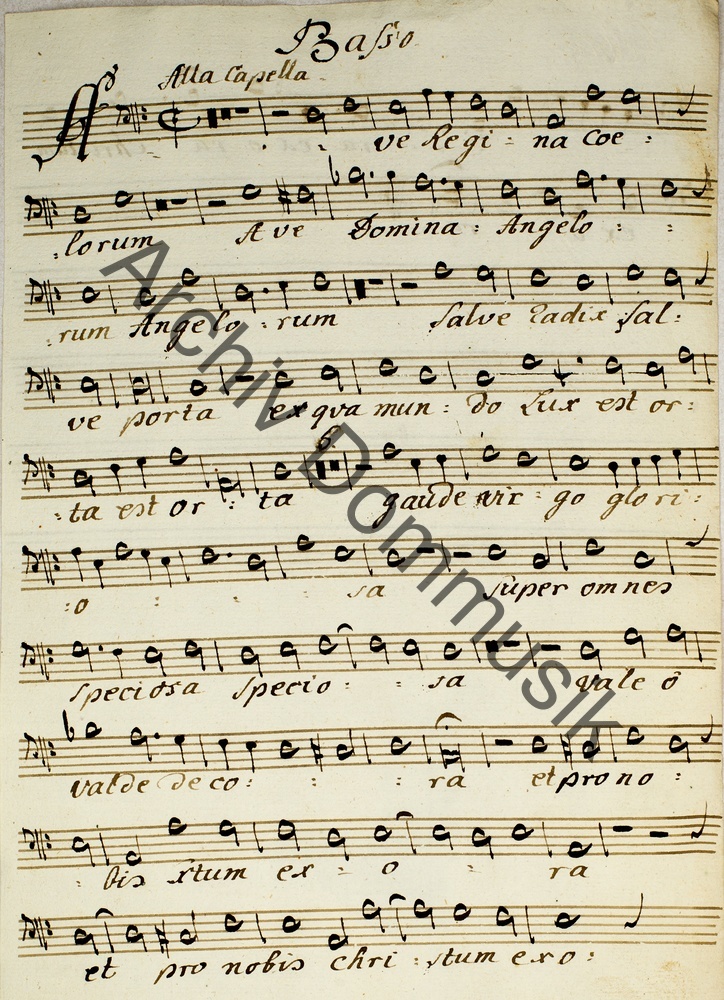 Basso
Alla Capella
Ave Regi - na Coe :
: lorum Ave Domina : Angelo : :
: rum Angelo : rum Salve Radix Sal :
ve porta exqva mun : do Lux est or :
: ta est or : ta gaude vir - go glori :
6.
: o : : : sa super omnes
speciosa specio : : sa vale ô
valde deco : : : ra et pro no :
: bis xtum ex : o : ra
et pro nobis Chri : stum exo :
Archiv Dommusik